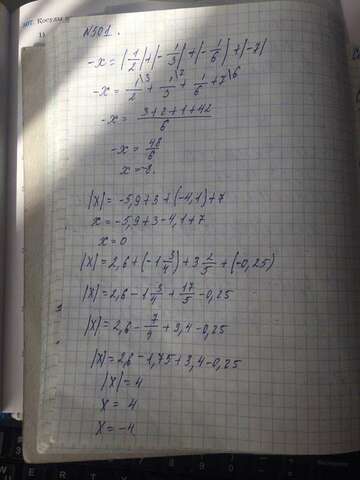 N301.
-x = |1/2| + |-1/3| + |-1/6| + |-7|
-x = 1/2 \3 + 1/3 \2 + 1/6 + 7 \6
-x = (3+2+1+42)/6
-x = 48/6
x = -8.
|x| = -5,9+3+(-4,1)+7
x = -5,9+3-4,1+7
x = 0
|x| = 2,6+(-1 3/4)+3 2/5+(-0,25)
|x| = 2,6-1 3/4+17/5-0,25
|x| = 2,6-7/4+3,4-0,25
|x| = 2,6-1,75+3,4-0,25
|x| = 4
x = 4
x = -4